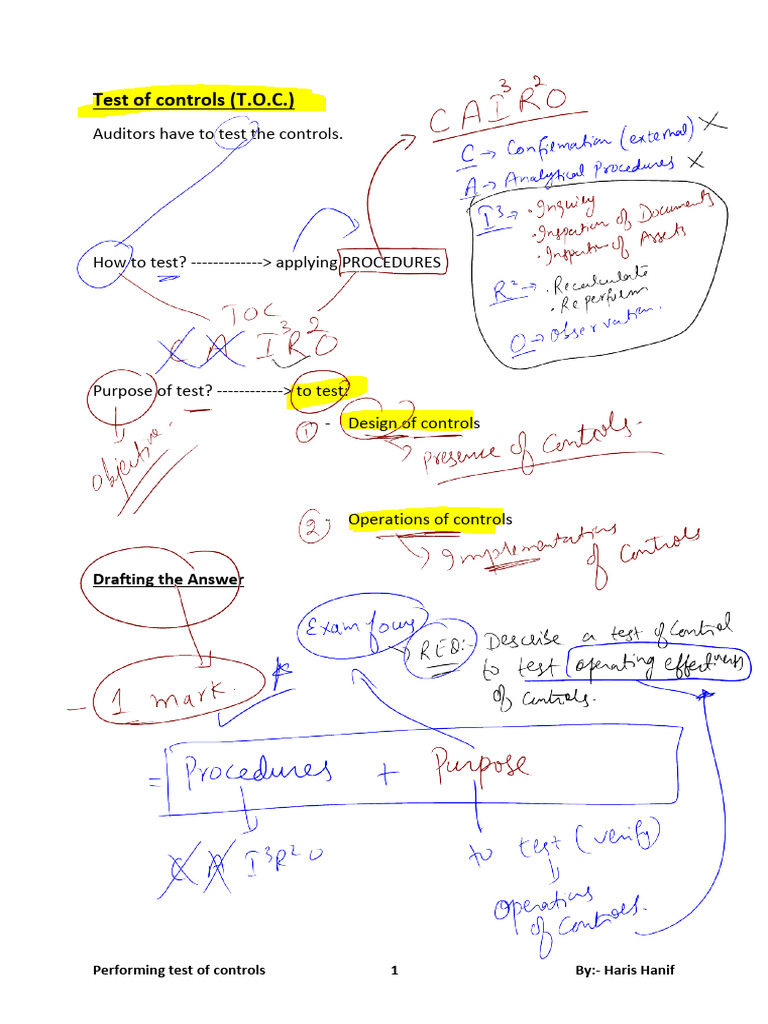 Test of controls (T.O.C.)
CAI³R²O
Auditors have to test the controls.
C → Confirmation (external) ✗
A → Analytical Procedures ✗
I³ → • Inquiry
• Inspection of Documents
• Inspection of Assets
R² → • Recalculate
• Reperform
O → Observation.
How to test? -------------> applying PROCEDURES
TOC
C A I³R²O
Purpose of test? ------------> to test?
Objective -
① - Design of controls
→ Presence of Controls.
② - Operations of controls
→ Implementations
of Controls
Drafting the Answer
Exam focus
→ REQ:- Describe a test of Control
to test operating effectiveness
of Controls.
- 1 mark.
= Procedures + Purpose
C A I³R²O
to test (verify)
Operations
of Controls.
Performing test of controls 1 By:- Haris Hanif